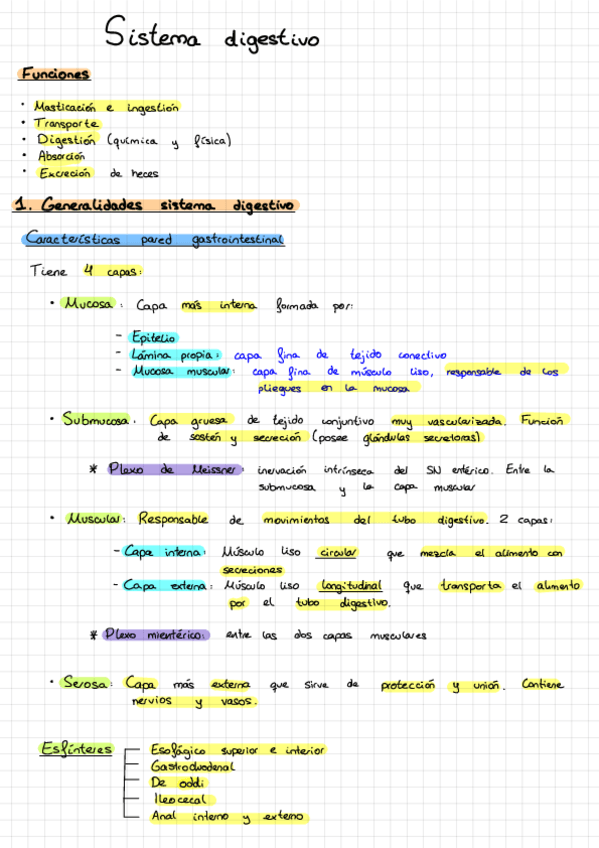 Sistema digestivo
Funciones
· Masticación e ingestión
· Transporte
· Digestión (química y física)
· Absorción
· Excreción de heces
1. Generalidades sistema digestivo
Características pared gastrointestinal
Tiene 4 capas:
· Mucosa: Capa más interna formada por:
- Epitelio
- Lámina propia: capa fina de tejido conectivo
- Mucosa muscular: capa fina de músculo liso, responsable de los
pliegues en la mucosa
· Submucosa. Capa gruesa de tejido conjuntivo muy vascularizada. Función
de sostén y secreción (posee glándulas secretoras)
* Plexo de Meissner: inervación intrínseca del SN entérico. Entre la
submucosa y la capa muscular
· Muscular: Responsable de movimientos del tubo digestivo. 2 capas:
- Capa interna: Músculo liso circular que mezcla el alimento con
secreciones
- Capa externa: Músculo liso longitudinal que transporta el alimento
por el tubo digestivo.
* Plexo mientérico: entre las dos capas musculares
· Serosa: Capa más externa que sirve de protección y unión. Contiene
nervios y vasos.
Esfínteres
Esofágico superior e interior
Gastroduodenal
De oddi
Ileocecal
Anal interno y externo